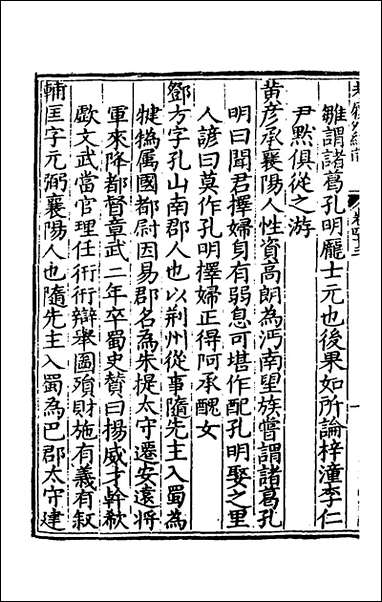 雛謂諸葛孔明龎士元也後果如所論梓潼李仁
尹黙俱從之游
黄彦承襄陽人性資高朗為沔南望族嘗謂諸葛孔
明曰聞君擇婦身有弱息可堪作配孔明娶之里
人諺曰莫作孔明擇婦正得阿承醜女
鄧方字孔山南郡人也以荆州從事隨先主入蜀為
犍為属國都尉因易郡名為朱提太守遷安遠將
軍來降都督章武二年卒蜀史贊曰揚威才幹欷
歔文武當官理任衎衎辯舉圖殞財施有義有叙
輔匡字元弼襄陽人也隨先主入蜀為巴郡太守建